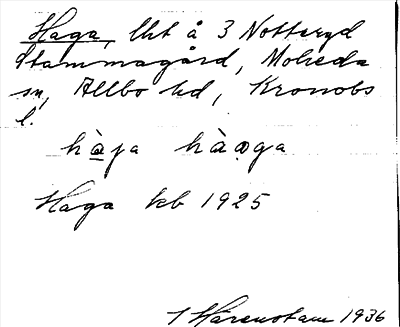 Haga, lht å 3 Notteryd
Stammagård, Moheda
sn, Allbo hd, Kronobs
l.
hàga hàaga
Haga kb 1925
Härenstam 1936